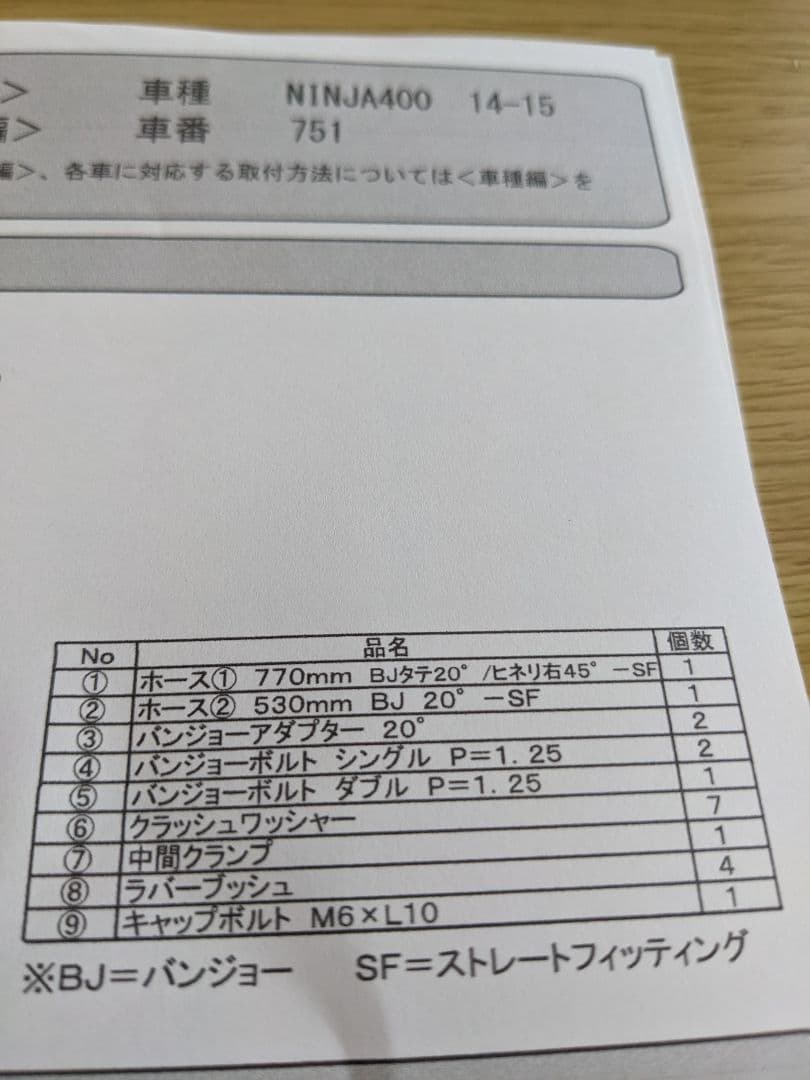 > 車種 NINJA400 14-15
編> 車番 751
編>、各車に対応する取付方法については<車種編>を
No 品名 個数
① ホース① 770mm BJタテ20° /ヒネリ右45° −SF 1
② ホース② 530mm BJ 20° −SF 1
③ バンジョーアダプター 20° 2
④ バンジョーボルト シングル P=1.25 2
⑤ バンジョーボルト ダブル P=1.25 1
⑥ クラッシュワッシャー 7
⑦ 中間クランプ 1
⑧ ラバーブッシュ 4
⑨ キャップボルト M6×L10 1
※BJ=バンジョー SF=ストレートフィッティング